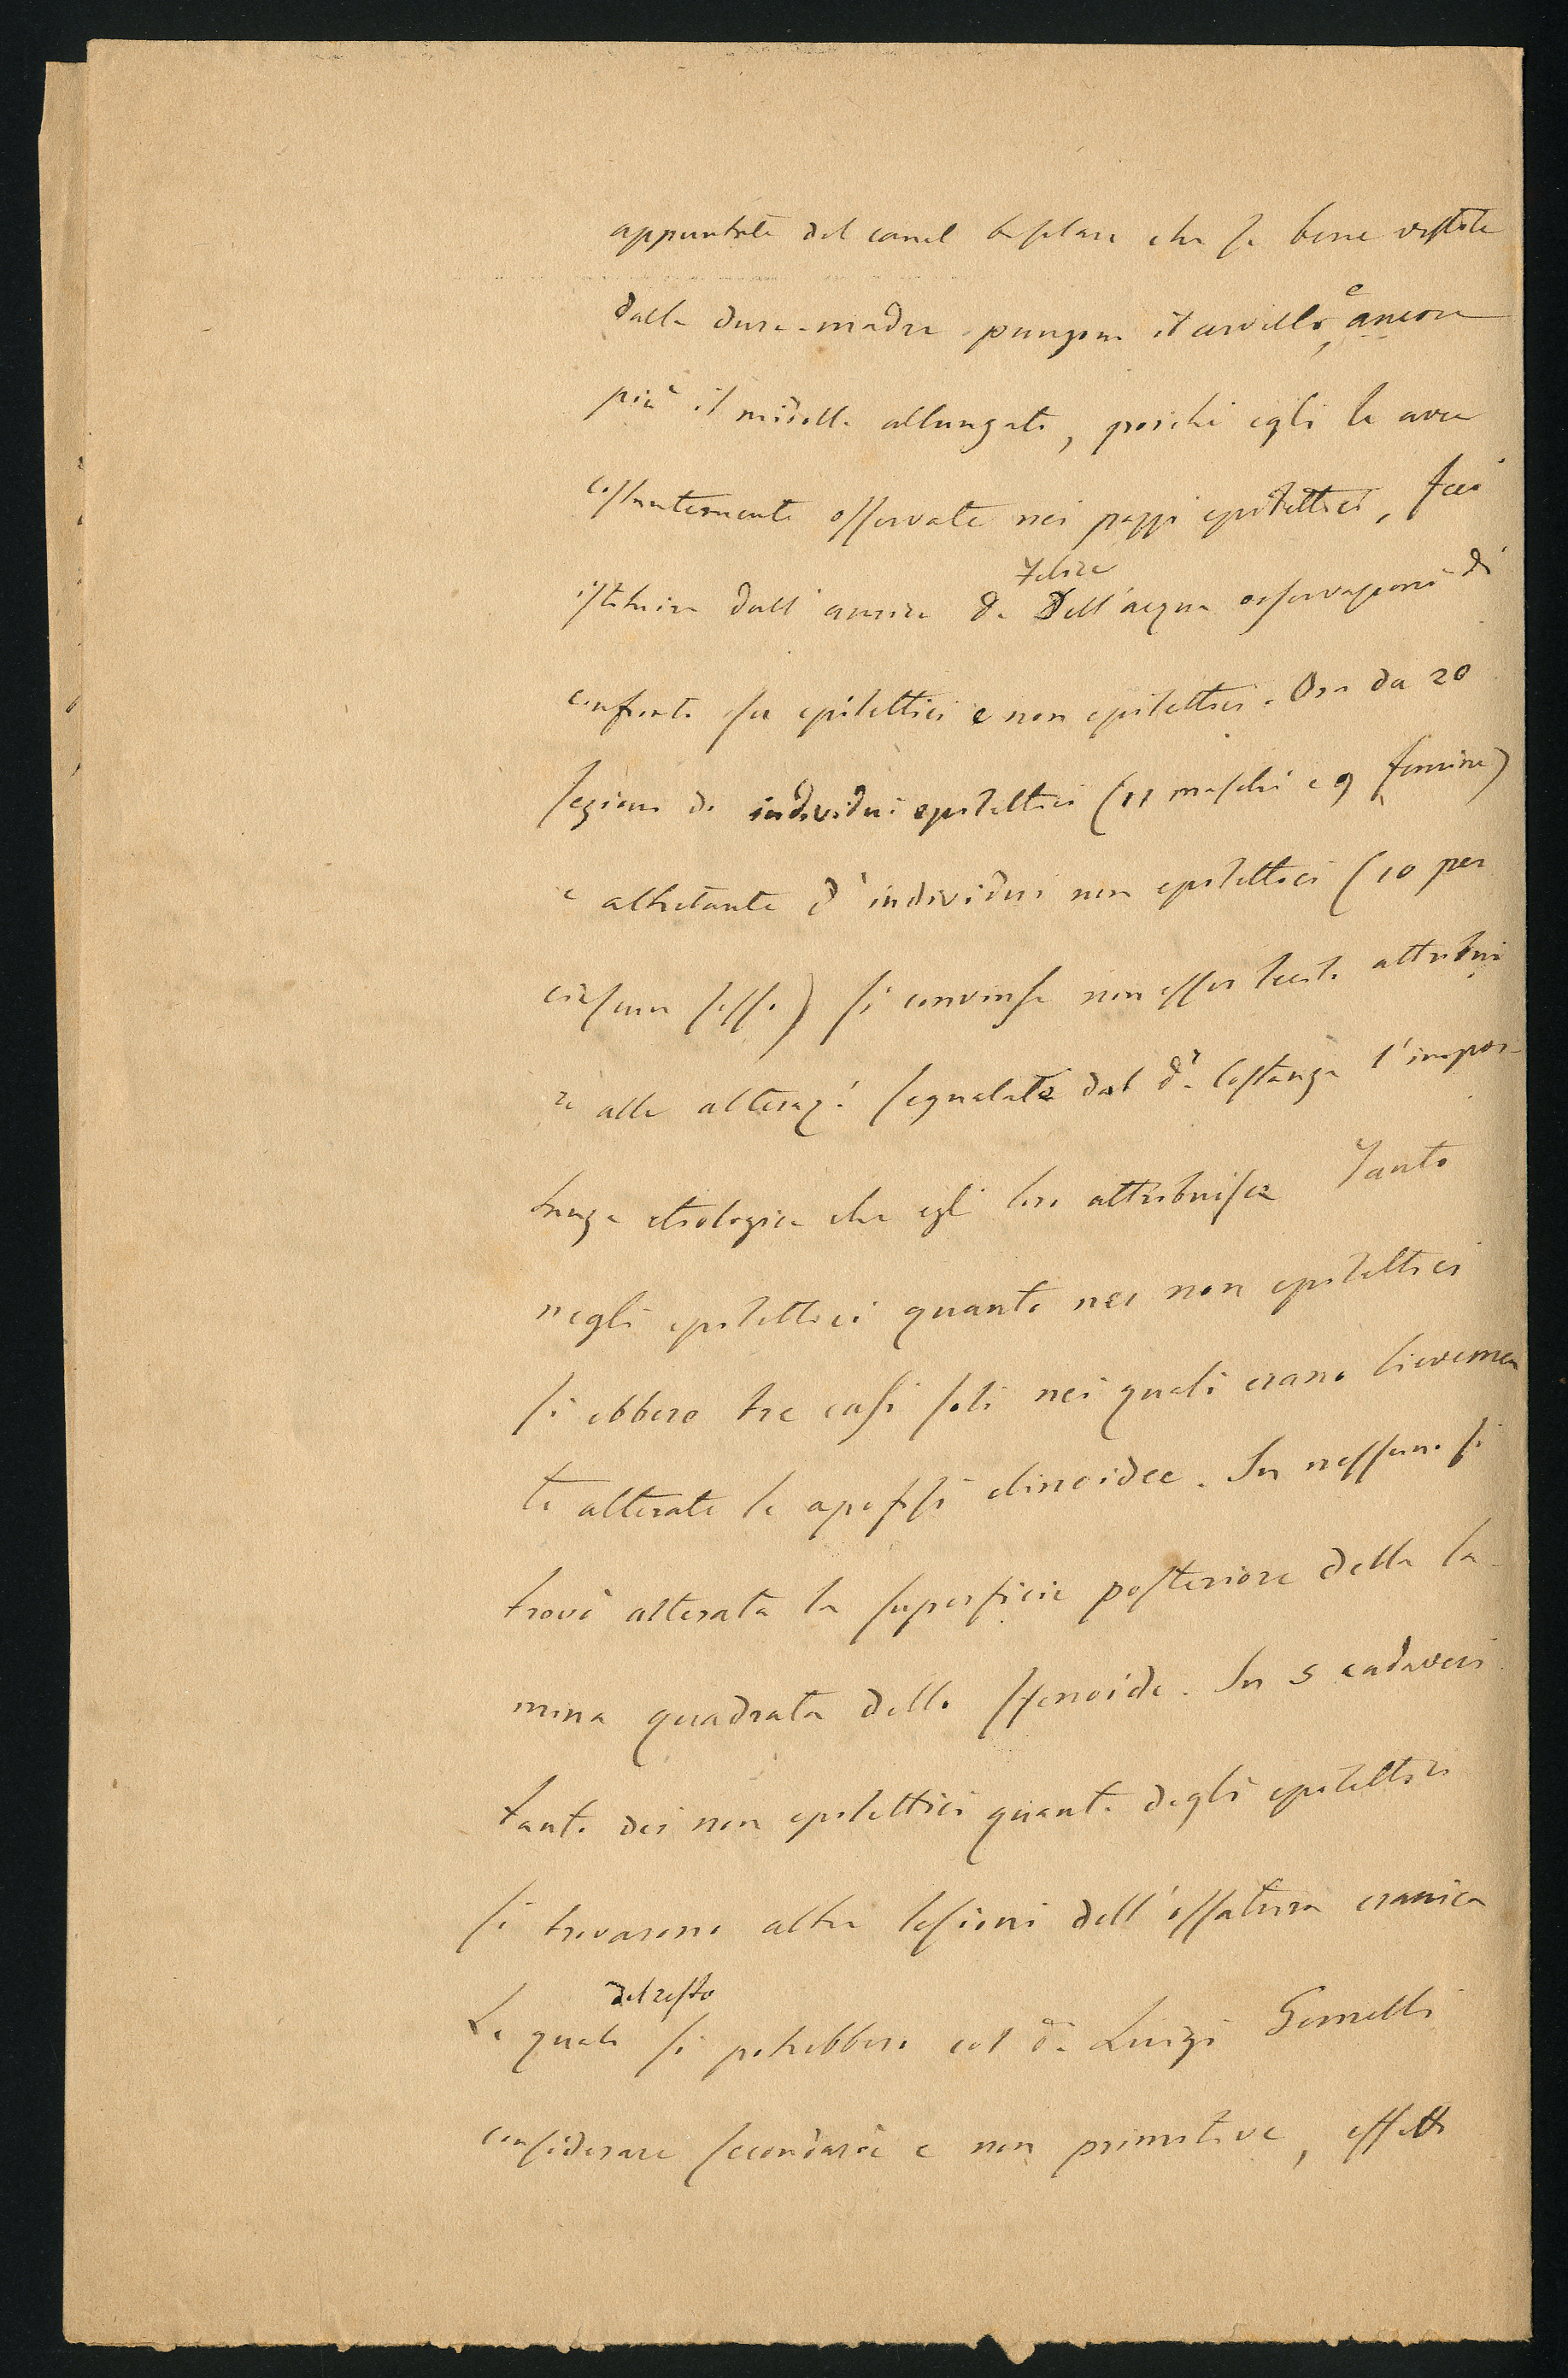 appuntate del canal basilare che se bene vestite
dalla dura-madre pungono il cervello, e ancora
più il midollo allungato, poichè egli le avea
costantemente osservate nei pazzi epilettici, feci
istituire dall'amico Dr Felice Dell'acqua osservazioni di
confronto su epilettici e non epilettici. Ora da 20
sezioni di individui epilettici (11 maschi e 9 femine)
e altretante d'individui non epilettici (10 per
ciascun sesso) si convinse non esser lecito attribui
re alle alteraz.i segnalate dal dr. Costanzo l'impor-
tanza etiologica che egli loro attribuisce Tanto
negli epilettici quanto nei non epilettici
si ebbero tre casi soli nei quali erano lievemen
te alterate le apofisi clinoidee. In nessuno si
trovò alterata la superficie posteriore della la-
mina quadrata dello sfenoide. In 5 cadaveri
tanto dei non epilettici quanto degli epilettici
si trovarono altre lesioni dell'ossatura cranica
Le quali del resto si potrebbero col dr. Luigi Gomelli
considerare secondarie e non primitive, effetti